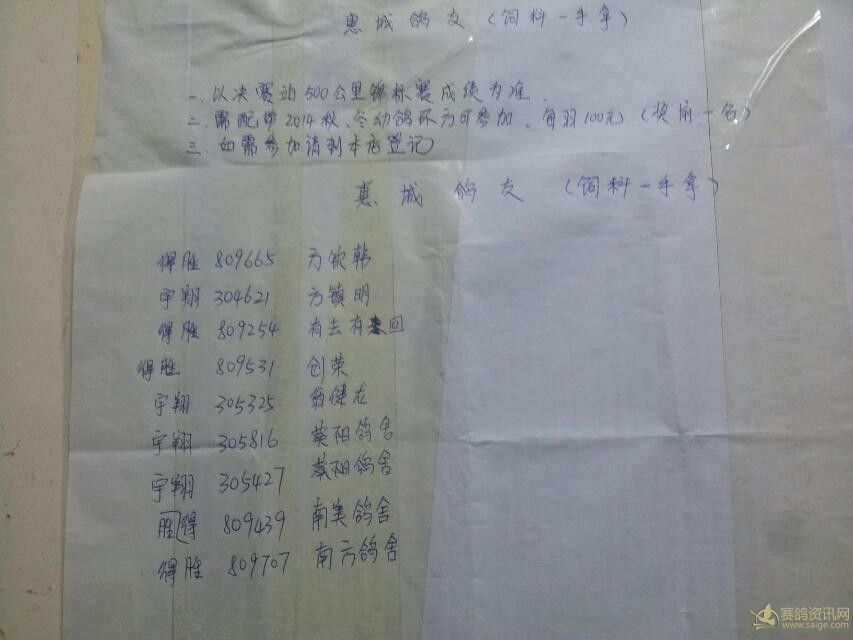 惠城鸽友（饲料一手拿）
一、以决赛站500公里锦标赛成绩为准.
二、需配带2014秋、冬幼鸽环方可参加、每羽100元（奖前一名）
三、如需参加请到本店登记
惠城鸽友（饲料一手拿）
得胜 809665 方钦韩
宇翔 304621 方镇明
得胜 809254 有去有回
得胜 809531 创荣
宇翔 305325 翁健龙
宇翔 305816 英阳鸽舍
宇翔 305427 英阳鸽舍
胜得 809439 南美鸽舍
得胜 809707 南方鸽舍
赛鸽资讯网
www.saige.com